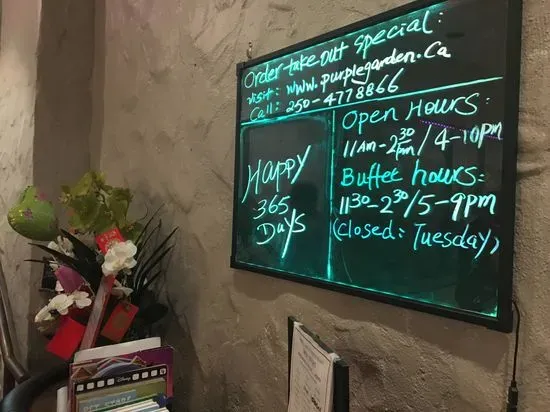 Order-take-out special:
visit: www.purplegarden.ca
Call: 250-4778866
Happy
365
Days
Open Hours:
11AM-230pm/4-10pm
Buffet hours:
1130-230/5-9pm
(closed: Tuesday)
Disney